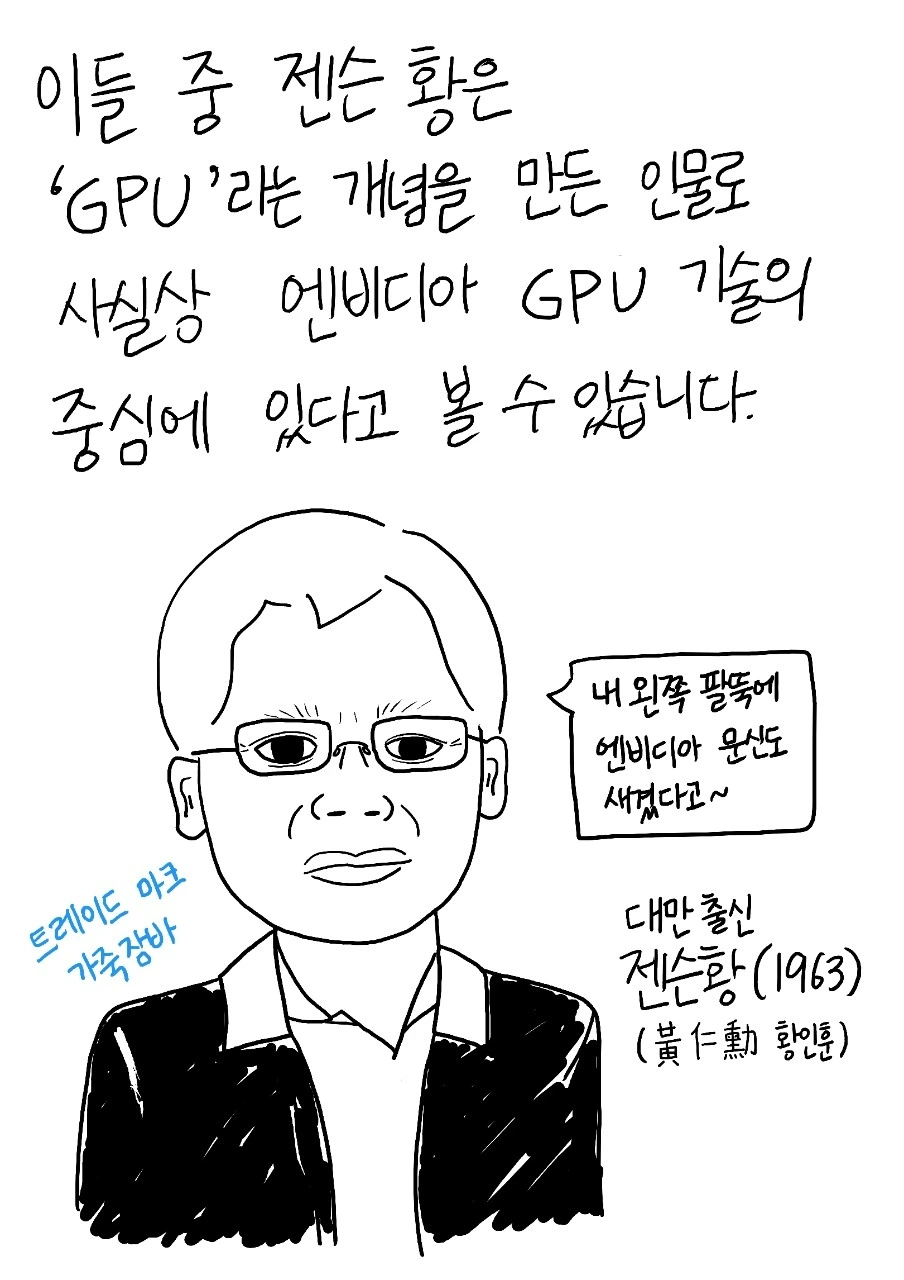 이들 중 젠슨 황은
'GPU'라는 개념을 만든 인물로
사실상 엔비디아 GPU 기술의
중심에 있다고 볼 수 있습니다.
내 왼쪽 팔뚝에
엔비디아 문신도
새겼다고~
트레이드 마크
가죽잠바
대만 출신
젠슨황 (1963)
(黃仁勳 황인훈)